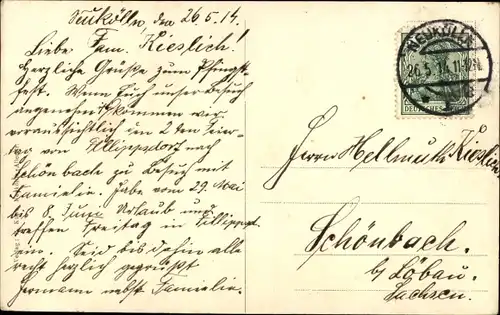 Neukölln den 26.5.14.
Liebe Fam. Kieslich!
Herzliche Grüße zum Pfingst-
fest. Wenn Euch unser Besuch
angenehm ist kommen wir
voraussichtlich im 2ten Feier-
tag von Fillippsdorf nach
Schönbach zu Besuch mit
Familie. Habe vom 29. Mai
bis 8. Juni Urlaub und
treffen Freitag in Fillippsd.
ein. Seid bis dahin alle
recht herzlich gegrüßt
Hermann nebst Familie.
NEUKÖLLN
26.5.14.11-12N.
DEUTSCHES
Herrn Hellmuth Kieslich
Schönbach.
b/ Löbau.
Sachsen.